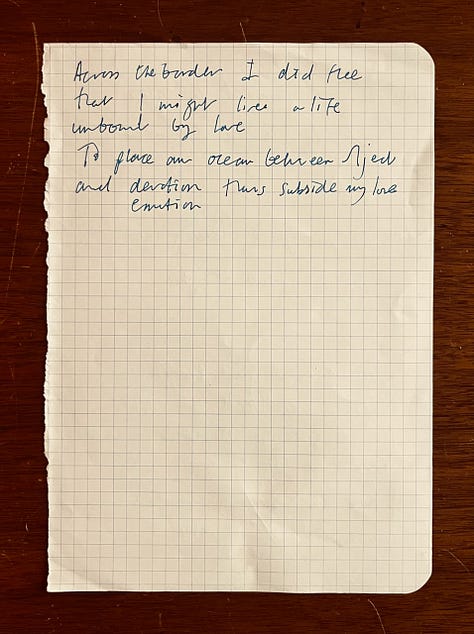 Across the border I did flee
that I might live a life
unbound by love
To place an ocean between object
and devotion thus subside my love
emotion